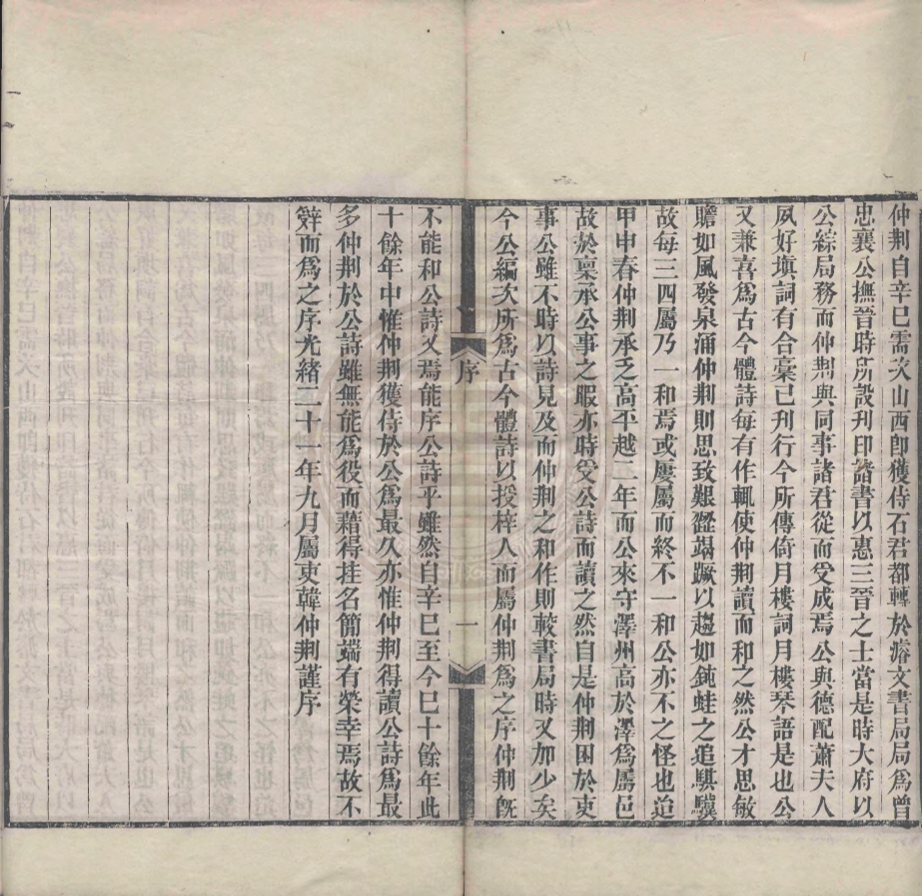 仲荆自辛巳需次山西卽獲侍石君都轉於濬文書局局爲曾
忠襄公撫晉時所設刊印諸書以惠三晉之士當是時大府以
公綜局務而仲荆與同事諸君從而受成焉公與德配蕭夫人
夙好塡詞有合稾已刊行今所傳倚月樓詞月樓琴語是也公
又兼喜爲古今體詩每有作輒使仲荆讀而和之然公才思敏
贍如風發泉涌仲荆則思致艱澀竭蹶以趨如鈍蛙之追騏驥
故每三四屬乃一和焉或屢屬而終不一和公亦不之怪也迨
甲申春仲荆承乏高平越二年而公來守澤州高於澤爲屬邑
故於稟承公事之暇亦時受公詩而讀之然自是仲荆困於吏
事公雖不時以詩見及而仲荆之和作則較書局時又加少矣
今公編次所爲古今體詩以授梓人而屬仲荆爲之序仲荆旣
序
一
不能和公詩又焉能序公詩乎雖然自辛巳至今巳十餘年此
十餘年中惟仲荆獲侍於公爲最久亦惟仲荆得讀公詩爲最
多仲荆於公詩雖無能爲役而藉得挂名簡端有榮幸焉故不
辤而爲之序光緒二十一年九月屬吏韓仲荆謹序